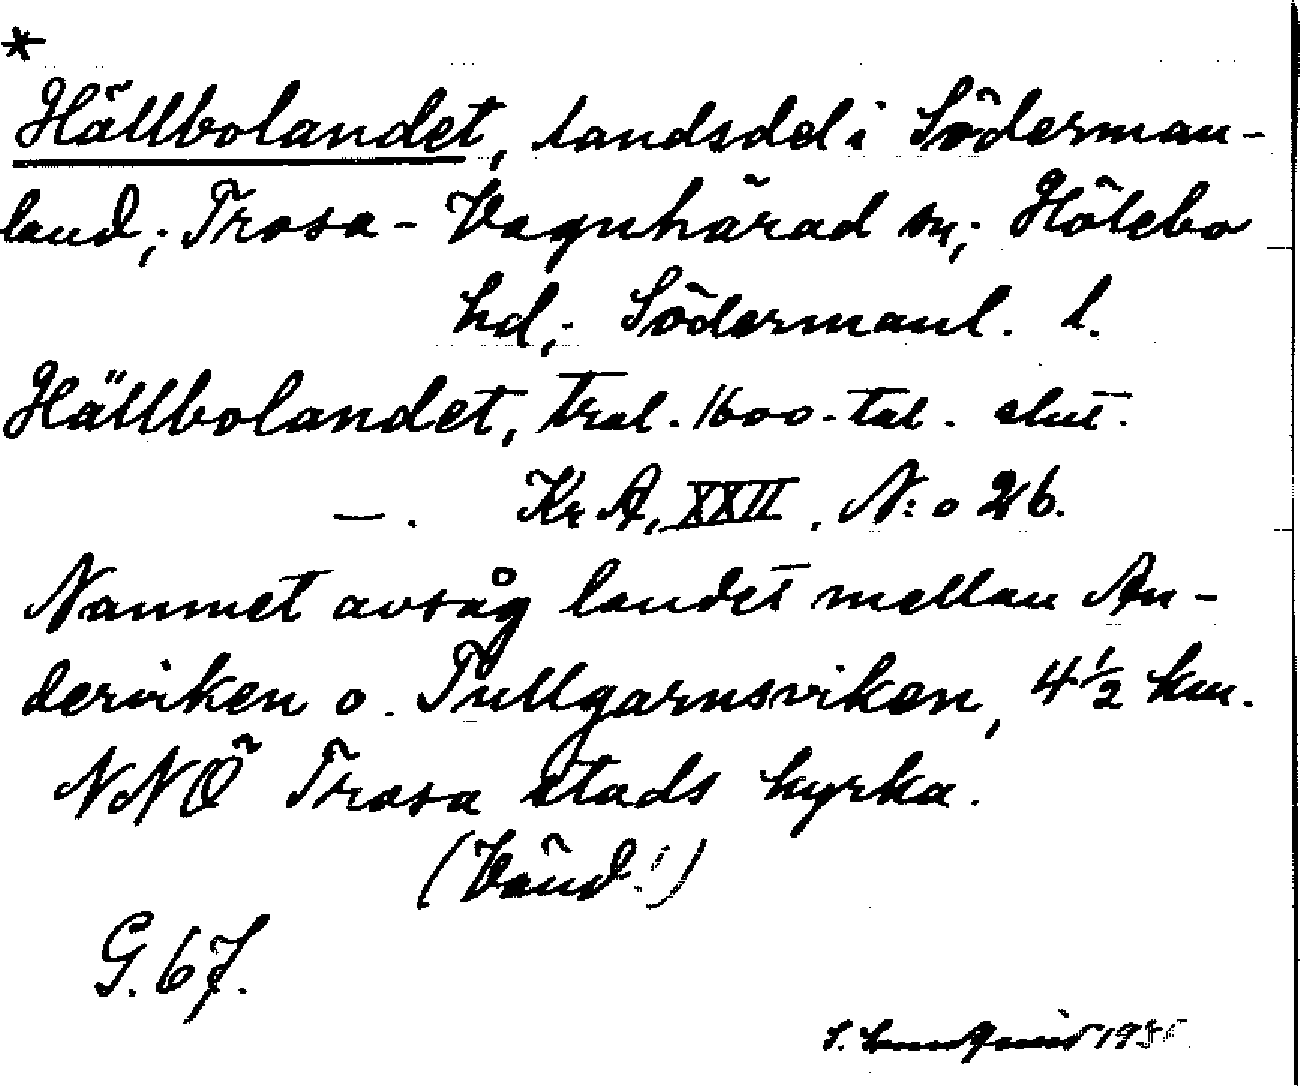 *
Hällbolandet, landsdel i Söderman-
land; Trosa-Vagnhärad sn; Hölebo
hd; Södermanl. l.
Hällbolandet, trol. 1600-tal. slut.
—. Kr A, XXII, N:o 26.
Namnet avsåg landet mellan An-
derviken o. Tullgarnsviken, 4½ km.
NNÖ Trosa stads kyrka.
(Vänd!)
G. 67.
S.